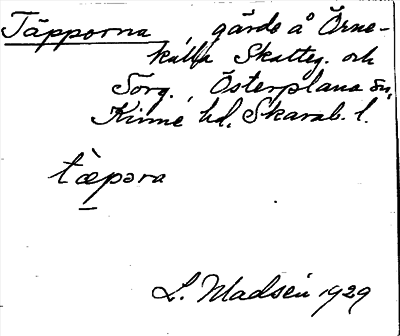 Täpporna, gärde å Örne-
källa Skatteg. och
Sörg., Österplana sn,
Kinne hd. Skarab. l.
tæ̀pəra
L. Madsén 1929